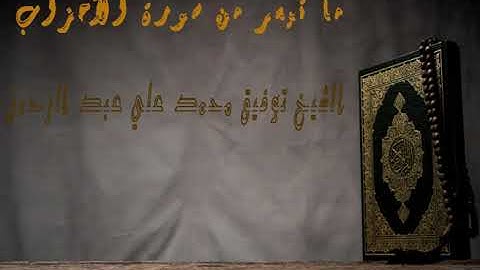 ما تيسر من سورة الأحزاب
الشيخ توفيق محمد علي عبد الرحمن